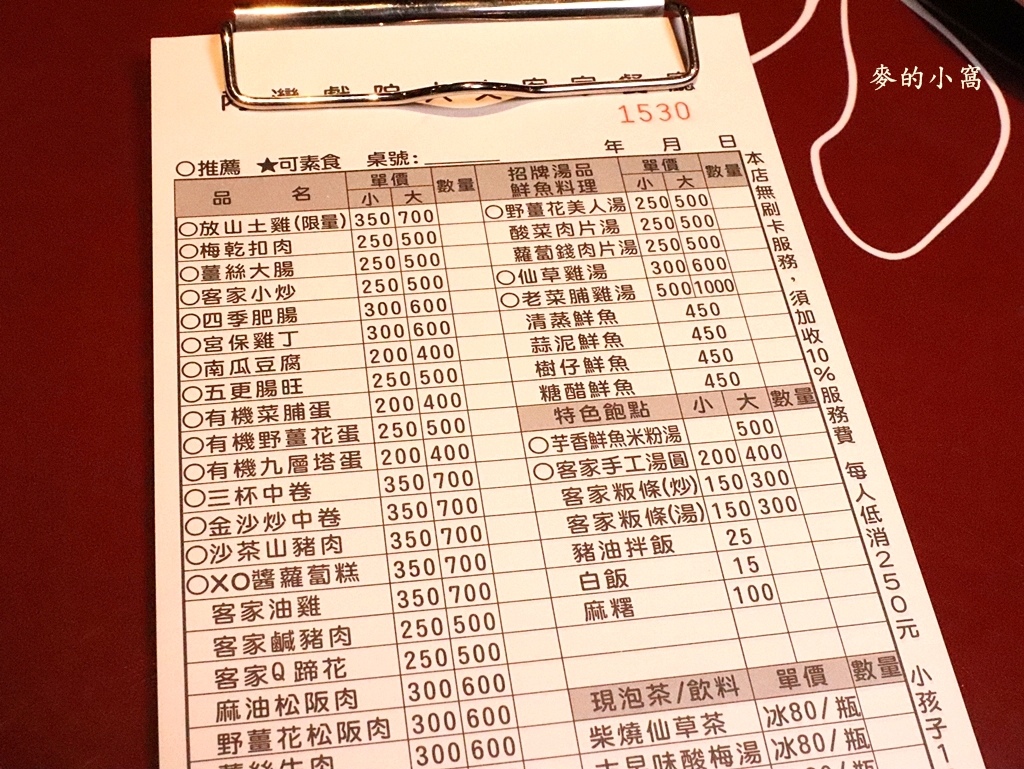 麥的小窩
灣戲院 客家餐廳
1530
年 月 日
○推薦 ★可素食 桌號:
品名 單價 小 大 數量
○放山土雞(限量) 350 700
○梅乾扣肉 250 500
○薑絲大腸 250 500
○客家小炒 250 500
○四季肥腸 300 600
○宮保雞丁 300 600
○南瓜豆腐 200 400
○五更腸旺 250 500
○有機菜脯蛋 200 400
○有機野薑花蛋 250 500
○有機九層塔蛋 200 400
○三杯中卷 350 700
○金沙炒中卷 350 700
○沙茶山豬肉 350 700
○XO醬蘿蔔糕 350 700
客家油雞 350 700
客家鹹豬肉 250 500
客家Q蹄花 250 500
麻油松阪肉 300 600
野薑花松阪肉 300 600
薑絲牛肉 300 600
招牌湯品
鮮魚料理 單價 小 大 數量
○野薑花美人湯 250 500
酸菜肉片湯 250 500
蘿蔔錢肉片湯 250 500
○仙草雞湯 300 600
○老菜脯雞湯 500 1000
清蒸鮮魚 450
蒜泥鮮魚 450
樹仔鮮魚 450
糖醋鮮魚 450
特色飽點 小 大 數量
○芋香鮮魚米粉湯 500
○客家手工湯圓 200 400
客家粄條(炒) 150 300
客家粄條(湯) 150 300
豬油拌飯 25
白飯 15
麻糬 100
現泡茶/飲料 單價 數量
柴燒仙草茶 冰80/瓶
古早味酸梅湯 冰80/瓶
本店無刷卡服務，須加收10%服務費 每人低消250元 小孩子1